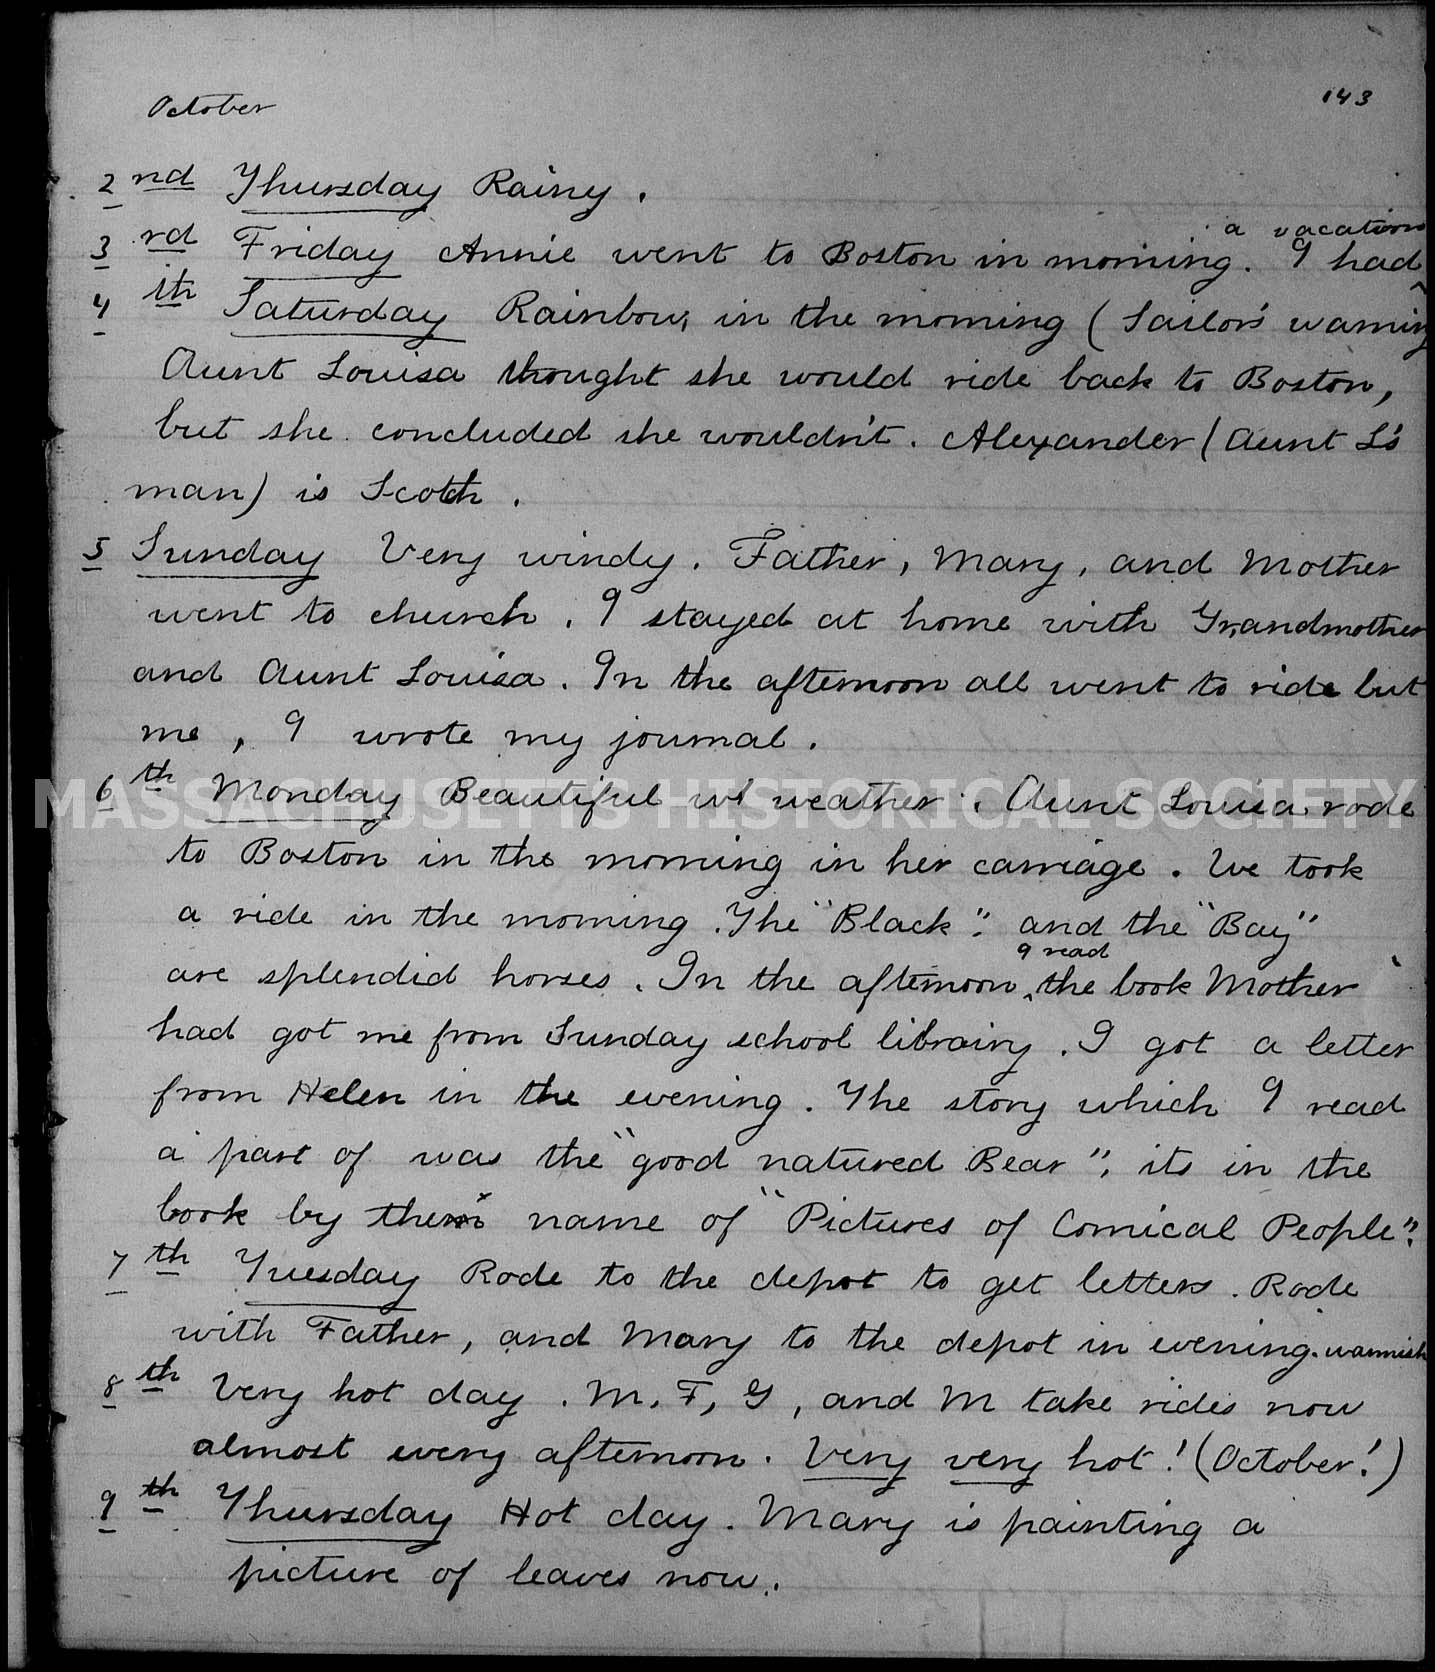 October 143
2nd Thursday Rainy.
3rd Friday Annie went to Boston in morning. I had a vacation
4th Saturday Rainbow, in the morning (Sailor's warning
Aunt Louisa thought she would ride back to Boston,
but she concluded she wouldn't. Alexander (Aunt L's
man) is Scotch.
5 Sunday Very windy. Father, Mary, and Mother
went to church. I stayed at home with Grandmother
and Aunt Louisa. In the afternoon all went to ride but
me, I wrote my journal.
6th Monday Beautiful w weather. Aunt Louisa rode
MASSACHUSETTS HISTORICAL SOCIETY
to Boston in the morning in her carriage. We took
a ride in the morning. The "Black". and the "Bay"
are splendid horses. In the afternoon I read the book Mother
had got me from Sunday school library. I got a letter
from Helen in the evening. The story which I read
a part of was the "good natured Bear", its in the
book by the name of "Pictures of Comical People".
7th Tuesday Rode to the depot to get letters. Rode
with Father, and Mary to the depot in evening. warmish
8th Very hot day. M, F, G, and M take rides now
almost every afternoon. Very very hot! (October!)
9th Thursday Hot day. Mary is painting a
picture of leaves now.